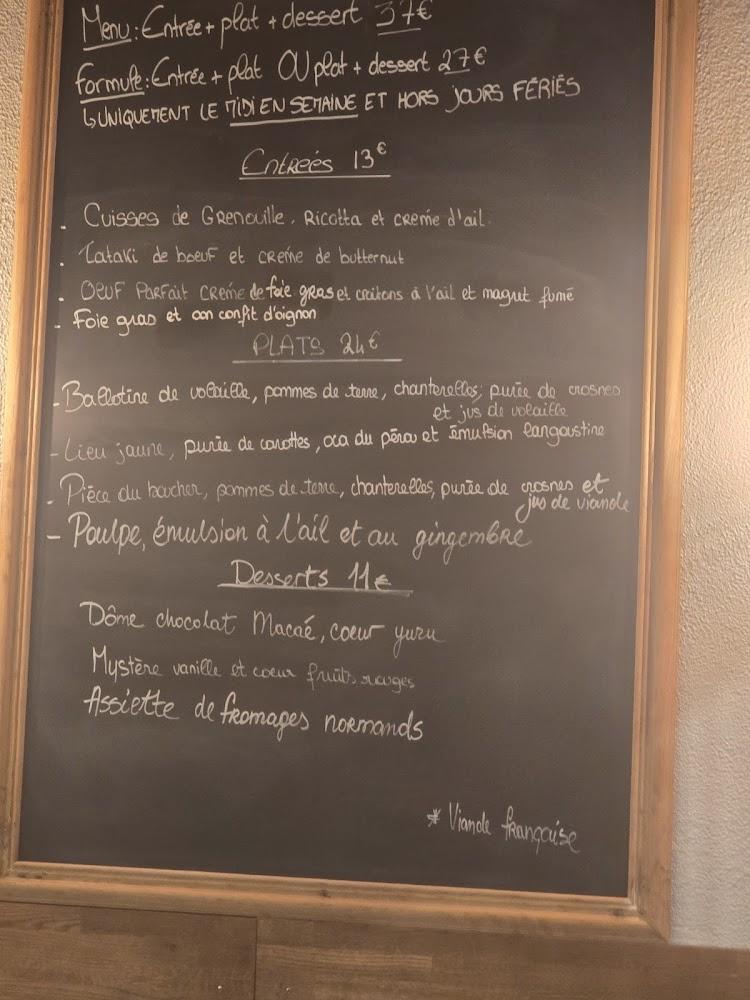 Menu : Entrée + plat + dessert 37€
Formule : Entrée + plat OU plat + dessert 27€
↳ UNIQUEMENT LE MIDI EN SEMAINE ET HORS JOURS FÉRIÉS
Entreés 13€
. Cuisses de Grenouille, Ricotta et creme d'ail.
. Tataki de boeuf et creme de butternut
. Oeuf Parfait Creme de foie gras et croutons à l'ail et magret fumé
- Foie gras et son confit d'oignon
PLATS 24€
- Ballotine de volaille, pommes de terre, chanterelles, purée de crosnes
et jus de volaille
- Lieu jaune, purée de carottes, oca du pérou et émulsion langoustine
- Pièce du boucher, pommes de terre, chanterelles, purée de crosnes et
jus de viande
- Poulpe, émulsion à l'ail et au gingembre
Desserts 11€
Dôme chocolat Macaé, coeur yuzu
Mystère vanille et coeur fruits rouges
Assiette de fromages normands
* Viande française